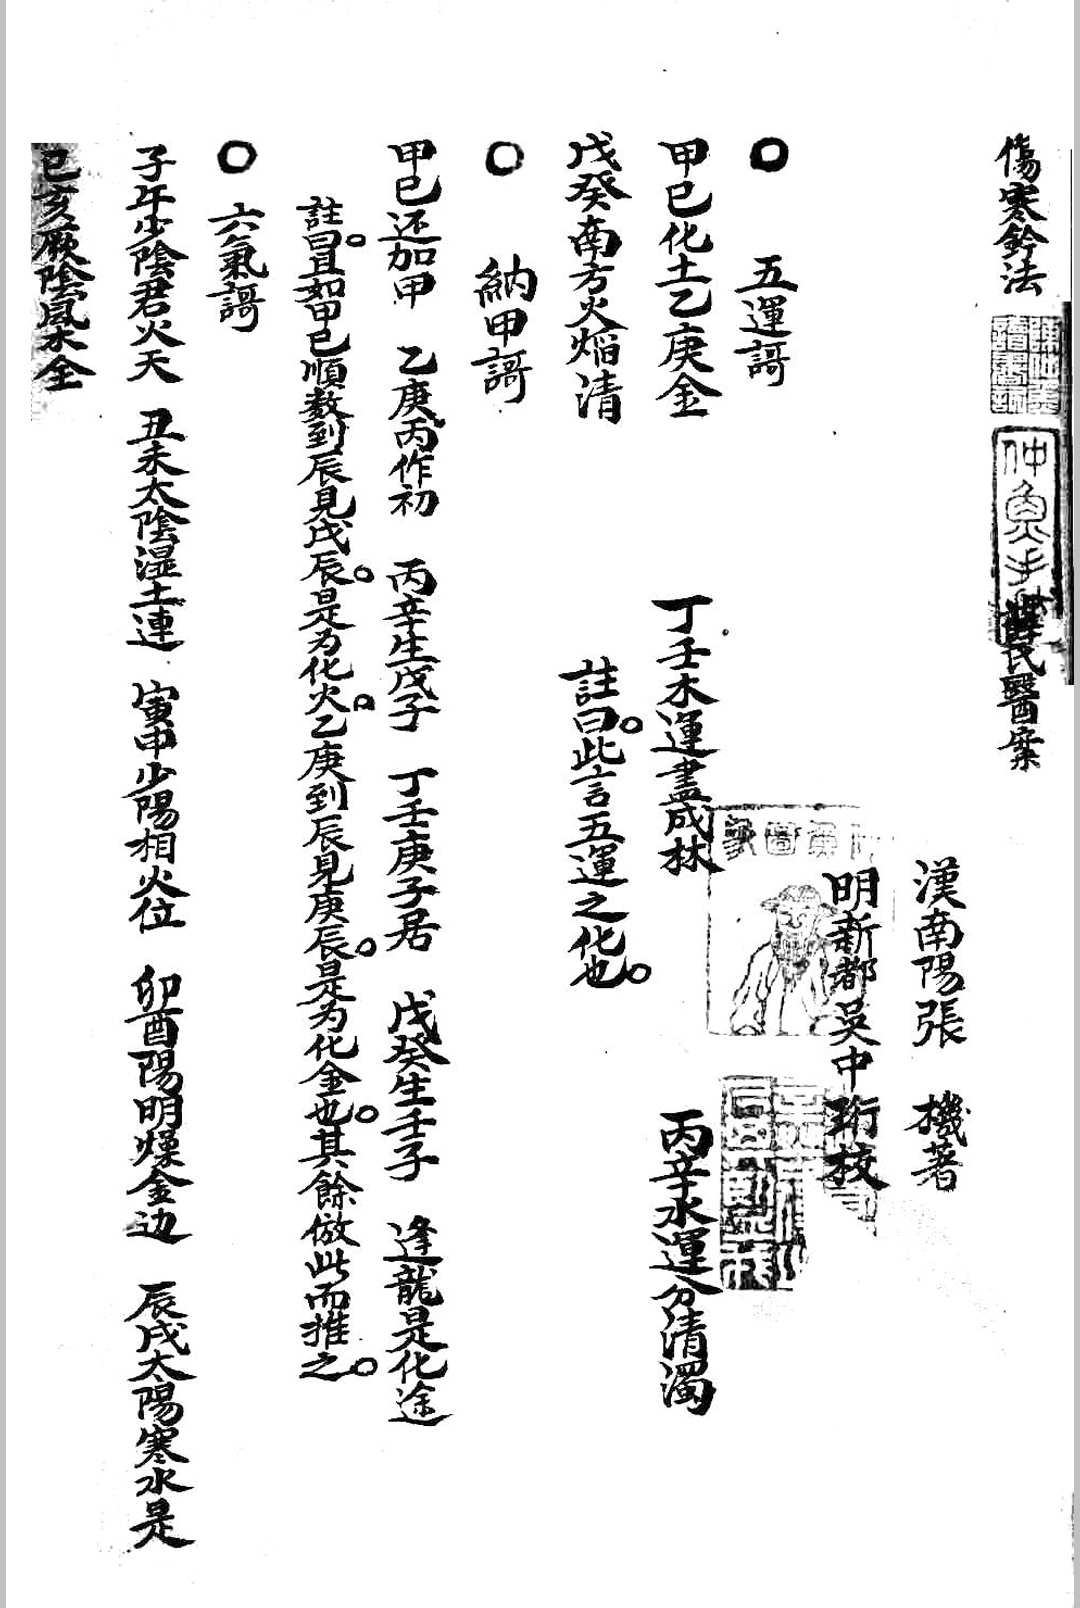 傷寒鈐法
薛氏醫案
漢南陽張　機著
明新都吳中珩校
五運謌
甲己化土乙庚金　丁壬木運盡成林　丙辛水運分清濁
戊癸南方火焰清　註曰此言五運之化也
納甲謌
甲己还加甲　乙庚丙作初　丙辛生戊子　丁壬庚子居　戊癸生壬子　逢龍是化途
註曰且如甲己順数到辰見戊辰是为化火乙庚到辰見庚辰是为化金也其餘倣此而推之
六氣謌
子午少陰君火天　丑未太陰湿土連　寅申少陽相火位　卯酉陽明燥金边　辰戌太陽寒水是
巳亥厥陰風木全